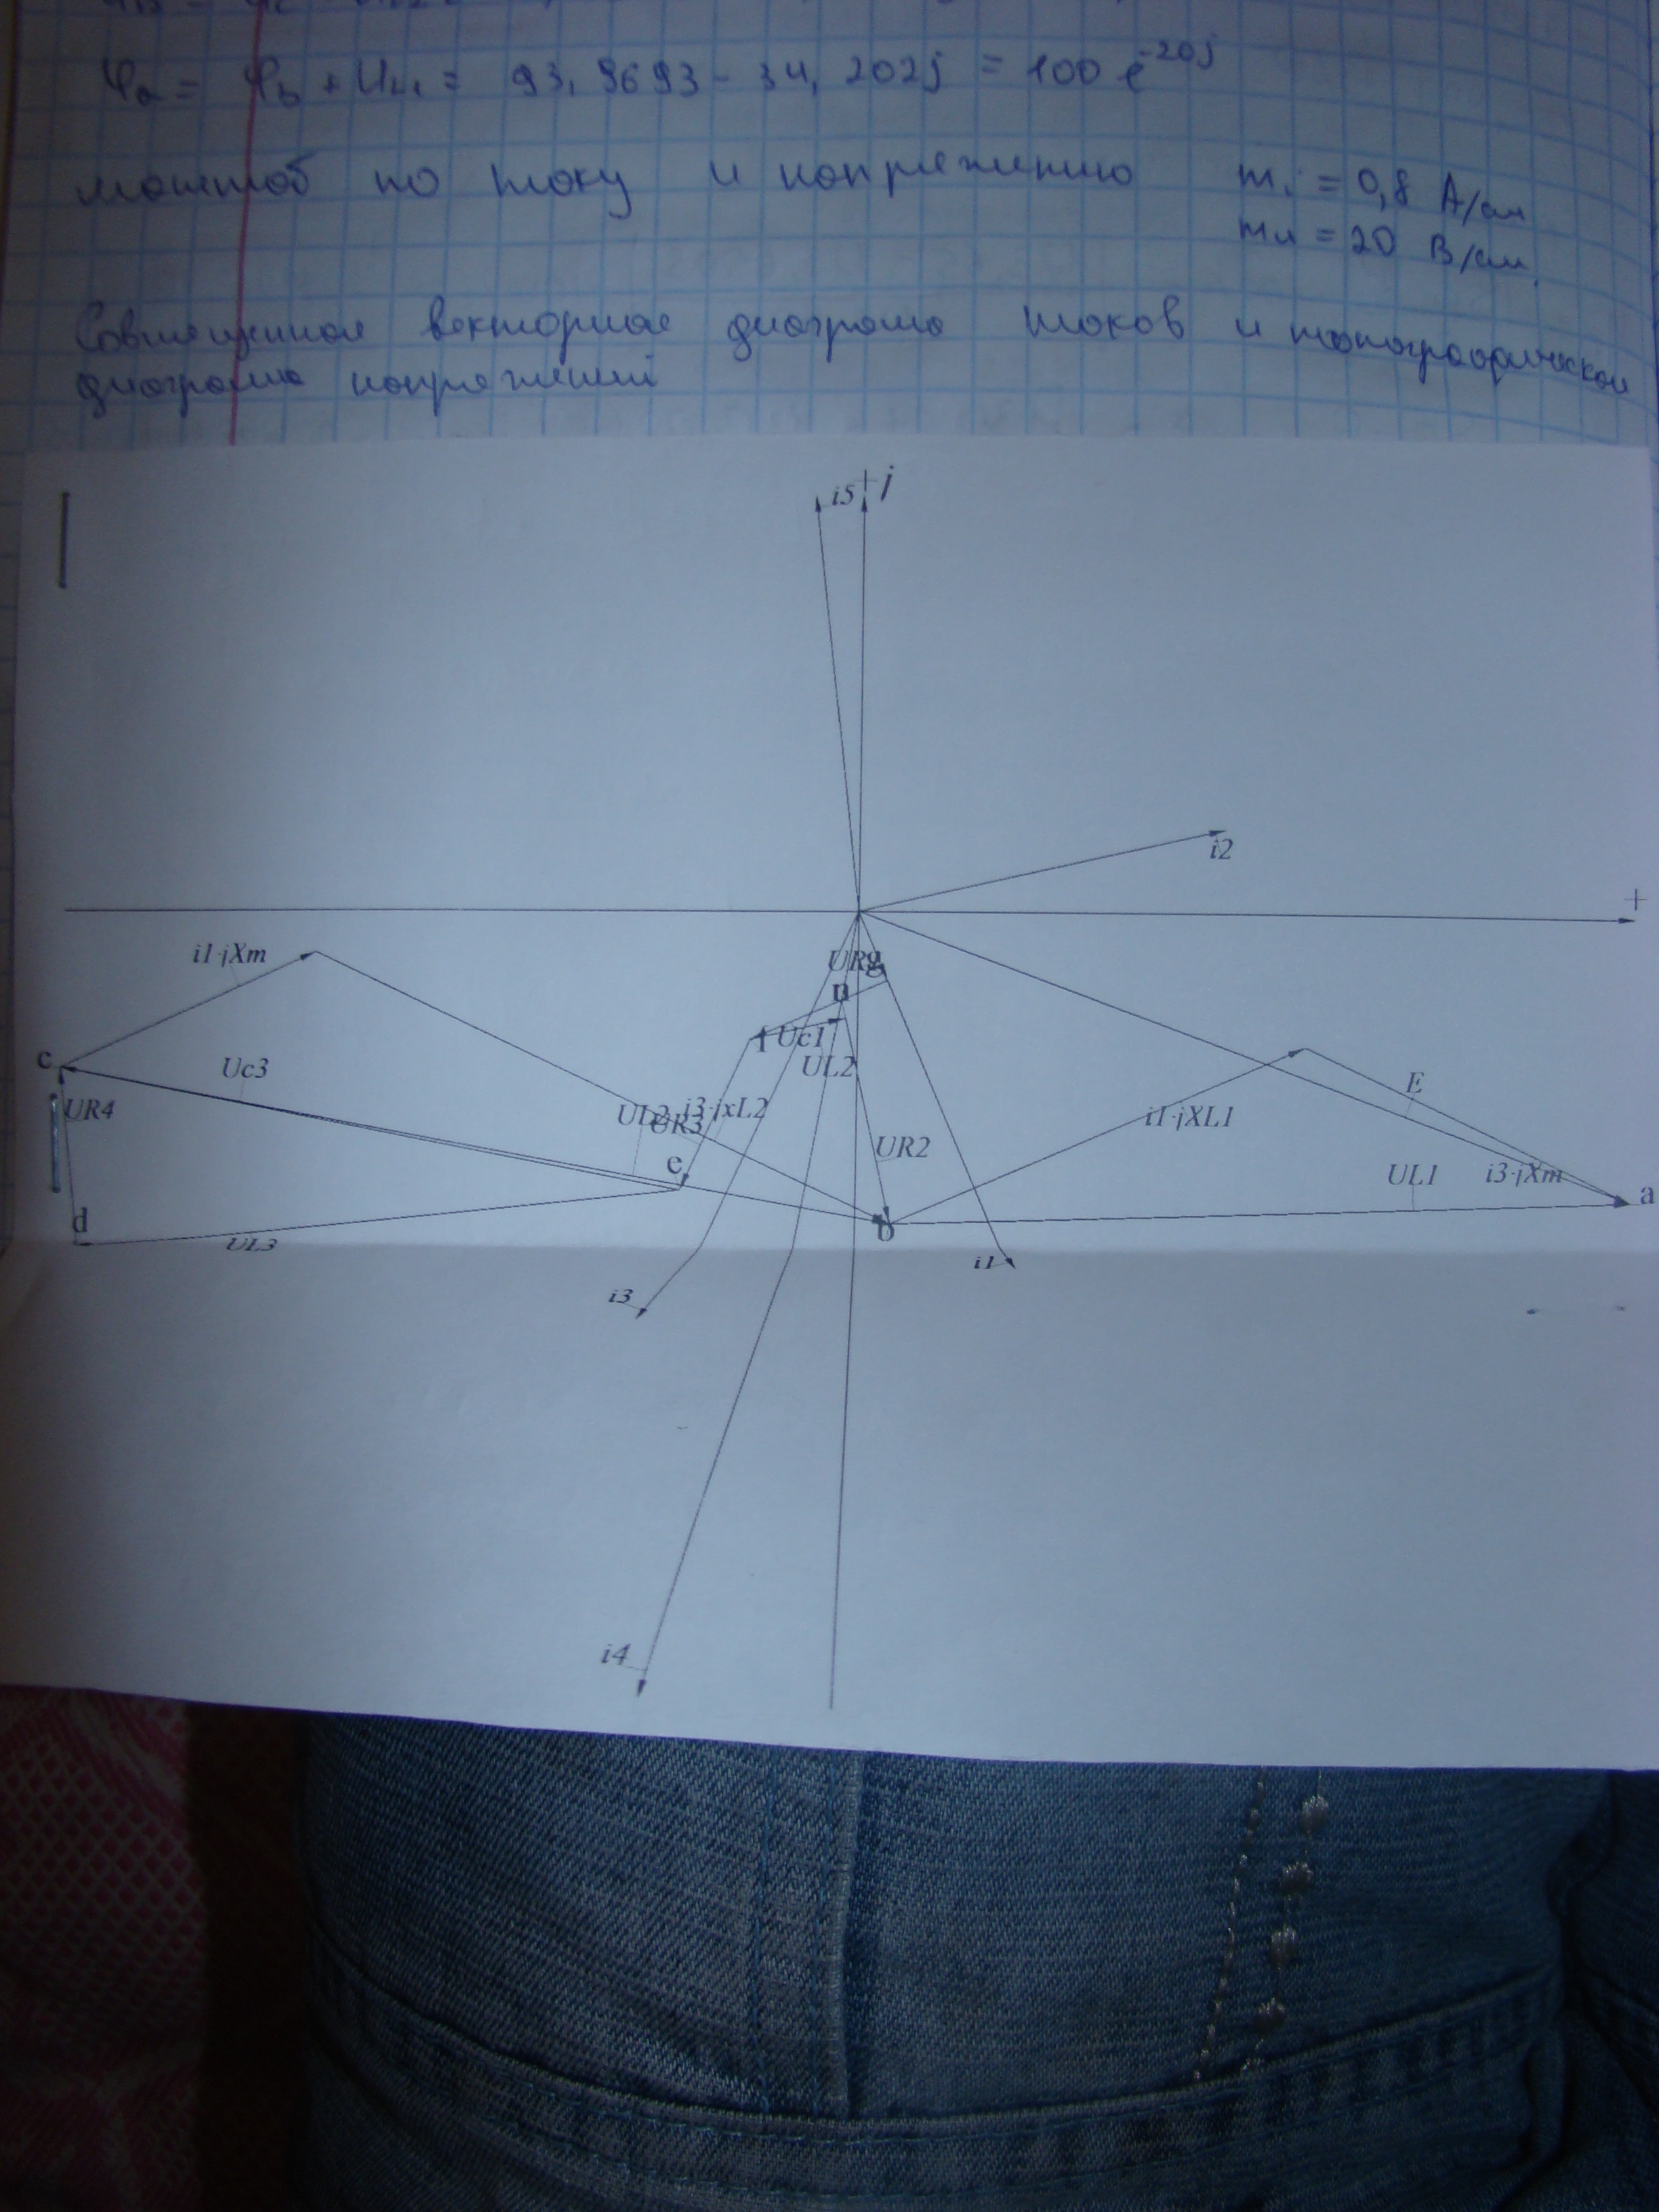 φa = φb + UL1 = 93,9693 - 34,202j = 100 e^-20j
масштаб по току и напряжению mi = 0,8 А/см
mu = 20 В/см
Совмещенная векторная диаграмма токов и топографическая
диаграмма напряжений
i5 +j
i2
+
i1·jXm
UR1 g
n
f Uc1
c
Uc3
UL2
E
UR4
UL2 i3·jxL2
UR3
i1·jXL1
UR2
e
UL1 i3·jXm a
d
b
UL3
i1
i3
i4